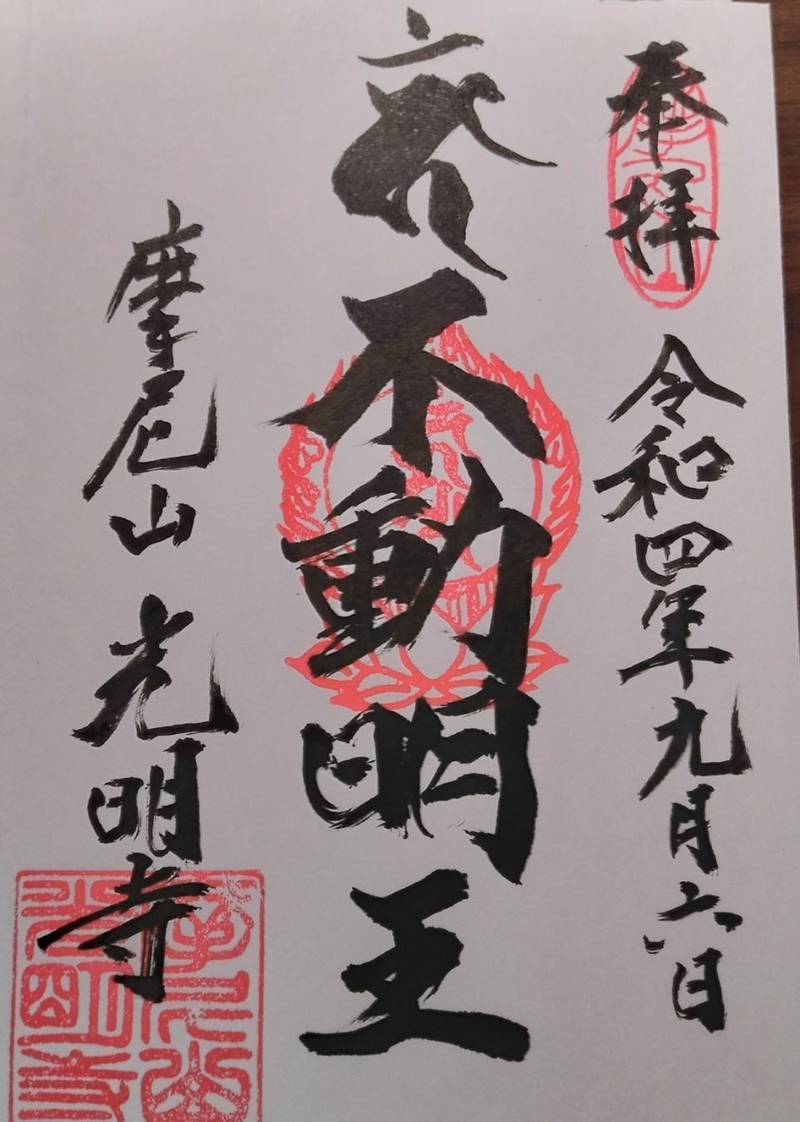 奉拝
令和四年九月六日
不動明王
摩尼山 光明寺